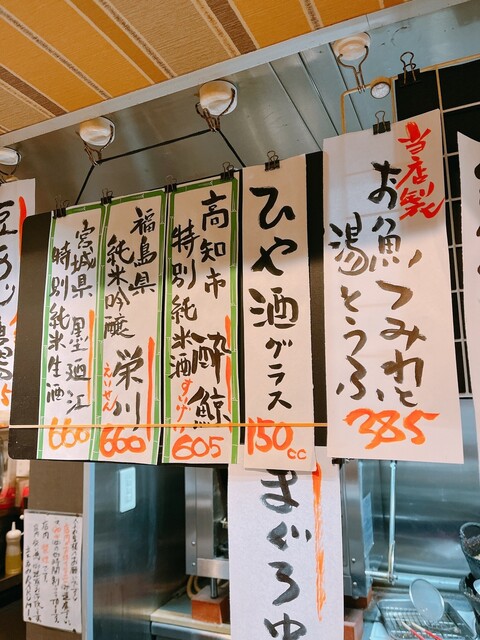 当店製
お魚つみれと
湯とうふ
385
ひや酒グラス
150cc
高知市 酔鯨
すいげい
特別純米酒
605
福島県 栄川
えいせん
純米吟醸
660
宮城県 墨廼江
特別純米生酒
660
まぐろゆ